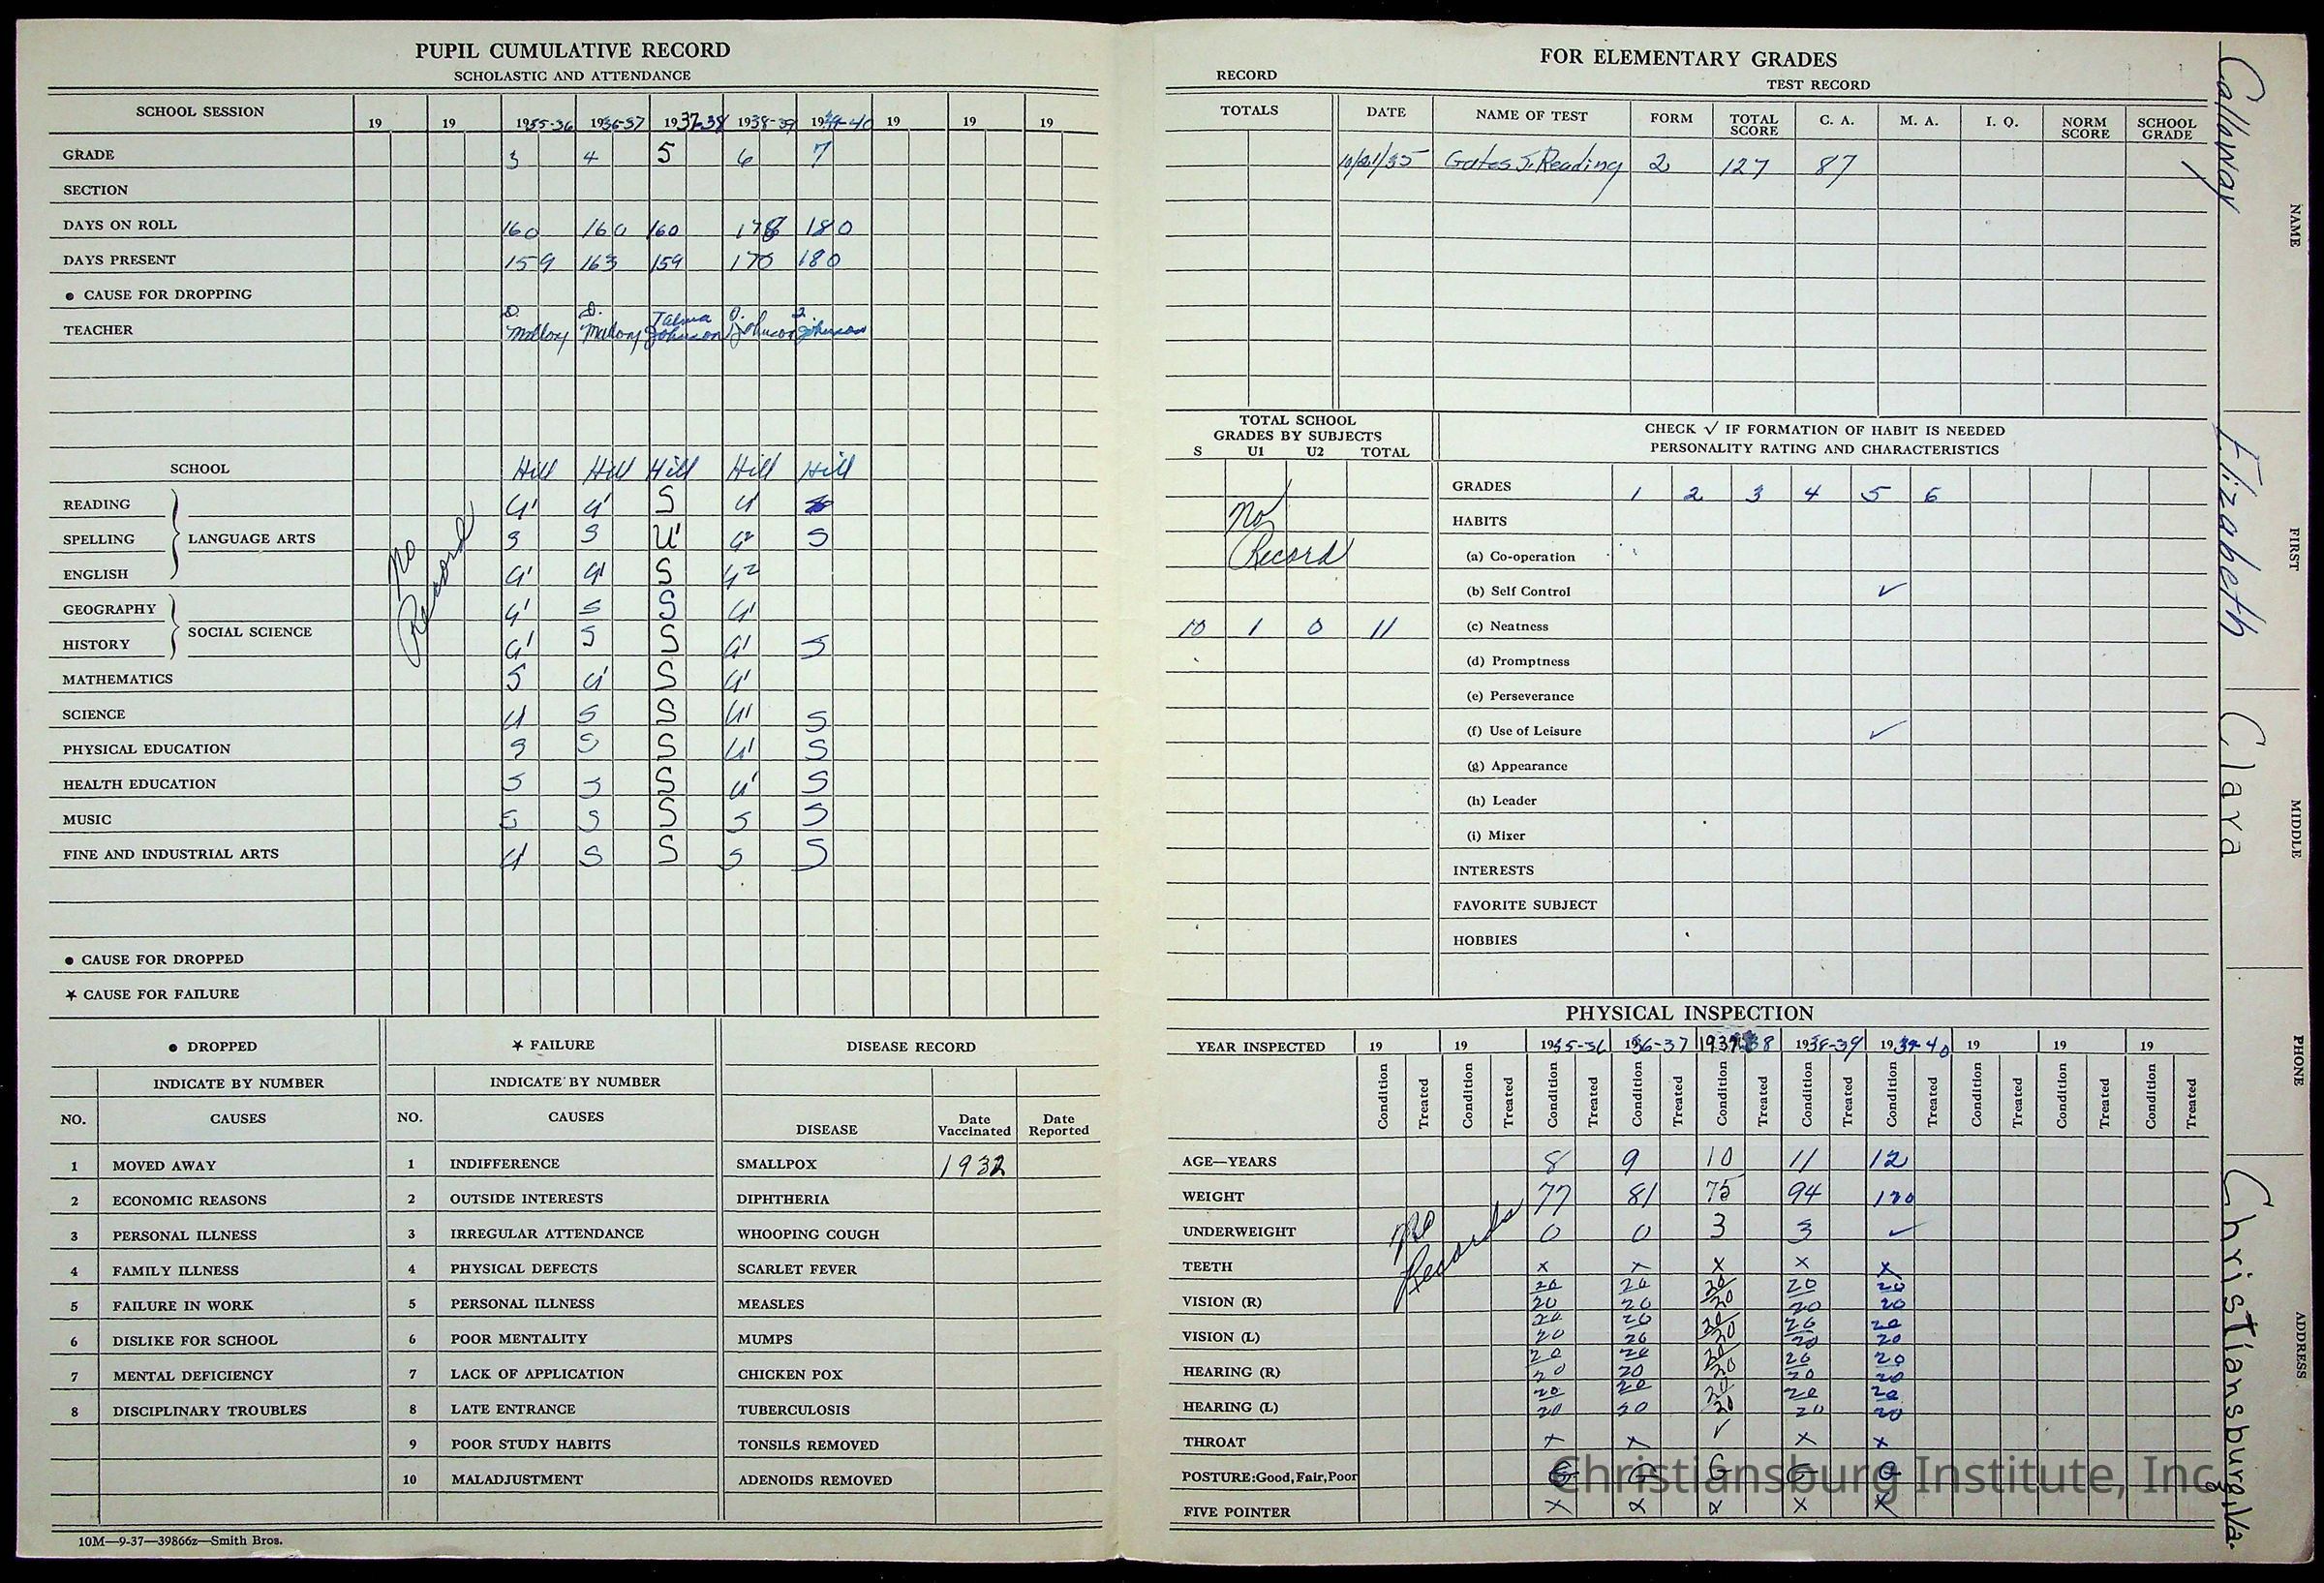 PUPIL CUMULATIVE RECORD
SCHOLASTIC AND ATTENDANCE
SCHOOL SESSION 19 19 1935-36 1936-37 1937-38 1938-39 1939-40 19 19 19
GRADE 3 4 5 6 7
SECTION
DAYS ON ROLL 160 160 160 178 180
DAYS PRESENT 159 163 159 170 180
● CAUSE FOR DROPPING
TEACHER D. Mallory D. Mallory Talma Johnson Johnson Johnson
SCHOOL Hill Hill Hill Hill Hill
No Record
READING U1 U1 S U1
SPELLING LANGUAGE ARTS S S U1 U2 S
ENGLISH U1 U1 S U2
GEOGRAPHY U1 S S U1
HISTORY SOCIAL SCIENCE U1 S S U1 S
MATHEMATICS S U1 S U1
SCIENCE U S S U1 S
PHYSICAL EDUCATION S S S U1 S
HEALTH EDUCATION S S S U1 S
MUSIC S S S S S
FINE AND INDUSTRIAL ARTS U S S S S
● CAUSE FOR DROPPED
★ CAUSE FOR FAILURE
● DROPPED
INDICATE BY NUMBER
NO. CAUSES
1 MOVED AWAY
2 ECONOMIC REASONS
3 PERSONAL ILLNESS
4 FAMILY ILLNESS
5 FAILURE IN WORK
6 DISLIKE FOR SCHOOL
7 MENTAL DEFICIENCY
8 DISCIPLINARY TROUBLES
★ FAILURE
INDICATE BY NUMBER
NO. CAUSES
1 INDIFFERENCE
2 OUTSIDE INTERESTS
3 IRREGULAR ATTENDANCE
4 PHYSICAL DEFECTS
5 PERSONAL ILLNESS
6 POOR MENTALITY
7 LACK OF APPLICATION
8 LATE ENTRANCE
9 POOR STUDY HABITS
10 MALADJUSTMENT
DISEASE RECORD
DISEASE Date Vaccinated Date Reported
SMALLPOX 1932
DIPHTHERIA
WHOOPING COUGH
SCARLET FEVER
MEASLES
MUMPS
CHICKEN POX
TUBERCULOSIS
TONSILS REMOVED
ADENOIDS REMOVED
10M—9-37—39866z—Smith Bros.
FOR ELEMENTARY GRADES
RECORD
TEST RECORD
TOTALS DATE NAME OF TEST FORM TOTAL SCORE C. A. M. A. I. Q. NORM SCORE SCHOOL GRADE
10/21/35 Gates S. Reading 2 127 87
TOTAL SCHOOL
GRADES BY SUBJECTS
S U1 U2 TOTAL
No
Record
10 1 0 11
CHECK √ IF FORMATION OF HABIT IS NEEDED
PERSONALITY RATING AND CHARACTERISTICS
GRADES 1 2 3 4 5 6
HABITS
(a) Co-operation
(b) Self Control ✓
(c) Neatness
(d) Promptness
(e) Perseverance
(f) Use of Leisure ✓
(g) Appearance
(h) Leader
(i) Mixer
INTERESTS
FAVORITE SUBJECT
HOBBIES
PHYSICAL INSPECTION
YEAR INSPECTED 19 19 1935-36 1936-37 1937-38 1938-39 1939-40 19 19 19
Condition Treated Condition Treated Condition Treated Condition Treated Condition Treated Condition Treated Condition Treated Condition Treated Condition Treated Condition Treated
No Records
AGE—YEARS 8 9 10 11 12
WEIGHT 77 81 75 94
UNDERWEIGHT 0 0 3 3 ✓
TEETH x x x x x
VISION (R) 20/20 20/20 20/20 20/20 20/20
VISION (L) 20/20 20/20 20/20 20/20 20/20
HEARING (R) 20/20 20/20 20/20 20/20 20/20
HEARING (L) 20/20 20/20 20/20 20/20 20/20
THROAT x x ✓ x x
POSTURE: Good, Fair, Poor G G G G G
FIVE POINTER x x x x x
Christiansburg Institute, Inc.
NAME Calloway
FIRST Elizabeth
MIDDLE Clara
PHONE
ADDRESS Christiansburg, Va.